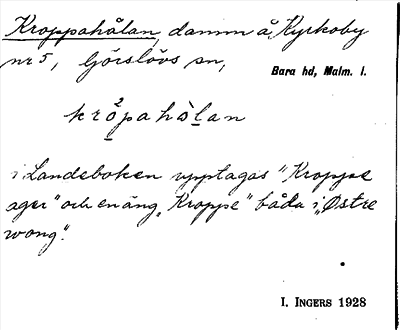 Kroppahålan, damm å Kyrkoby
nr 5, Görslövs sn,
Bara hd, Malm. l.
kròpahòlan
i Landeboken upptages "Kroppe
ager" och en äng "Kroppe" båda i "Østre
wong".
I. INGERS 1928